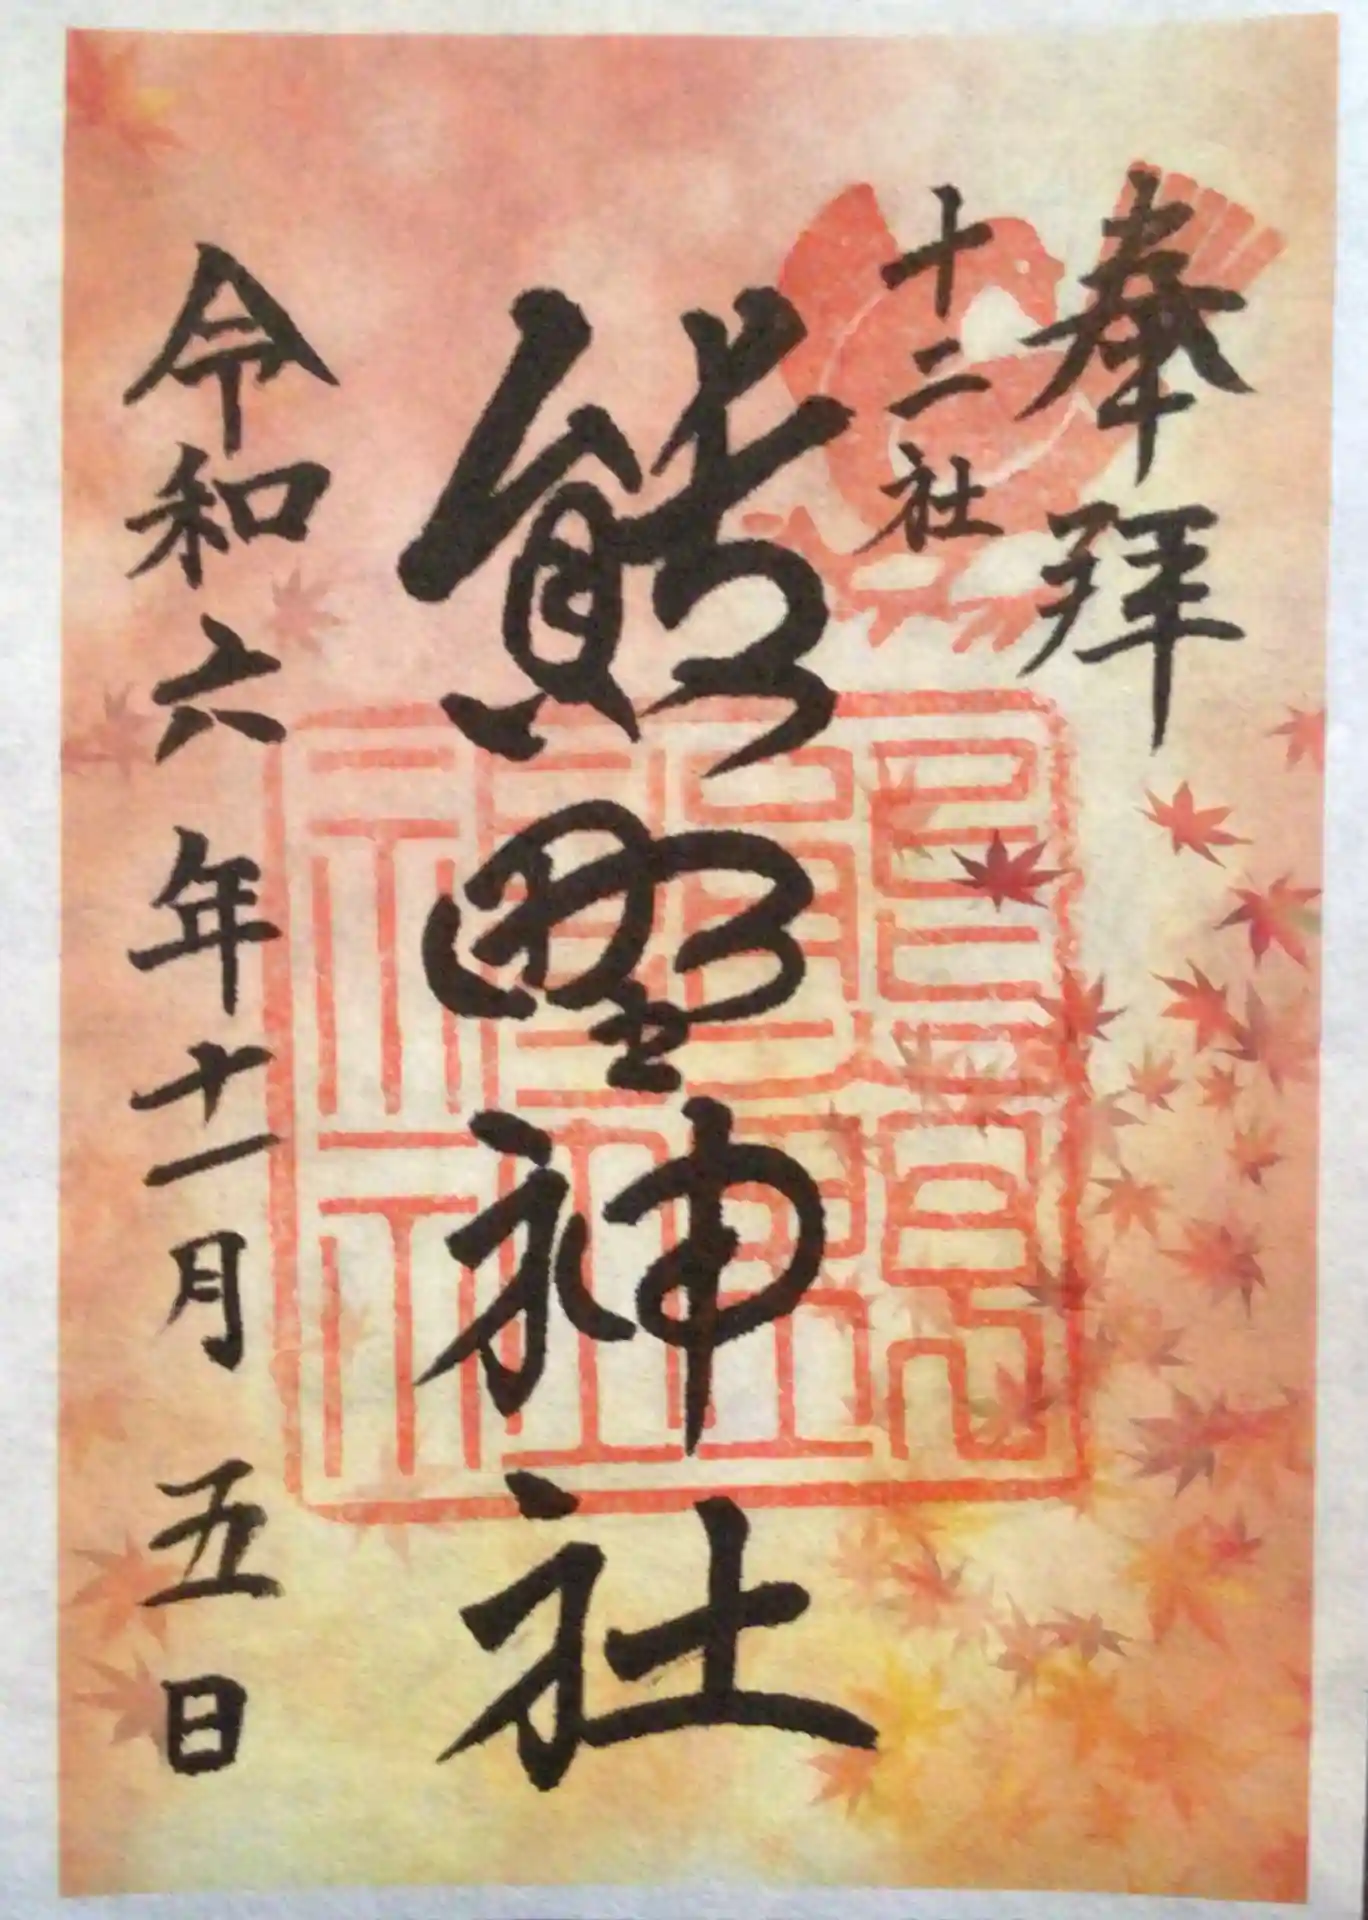 奉拝
十二社
熊野神社
令和六年十一月五日